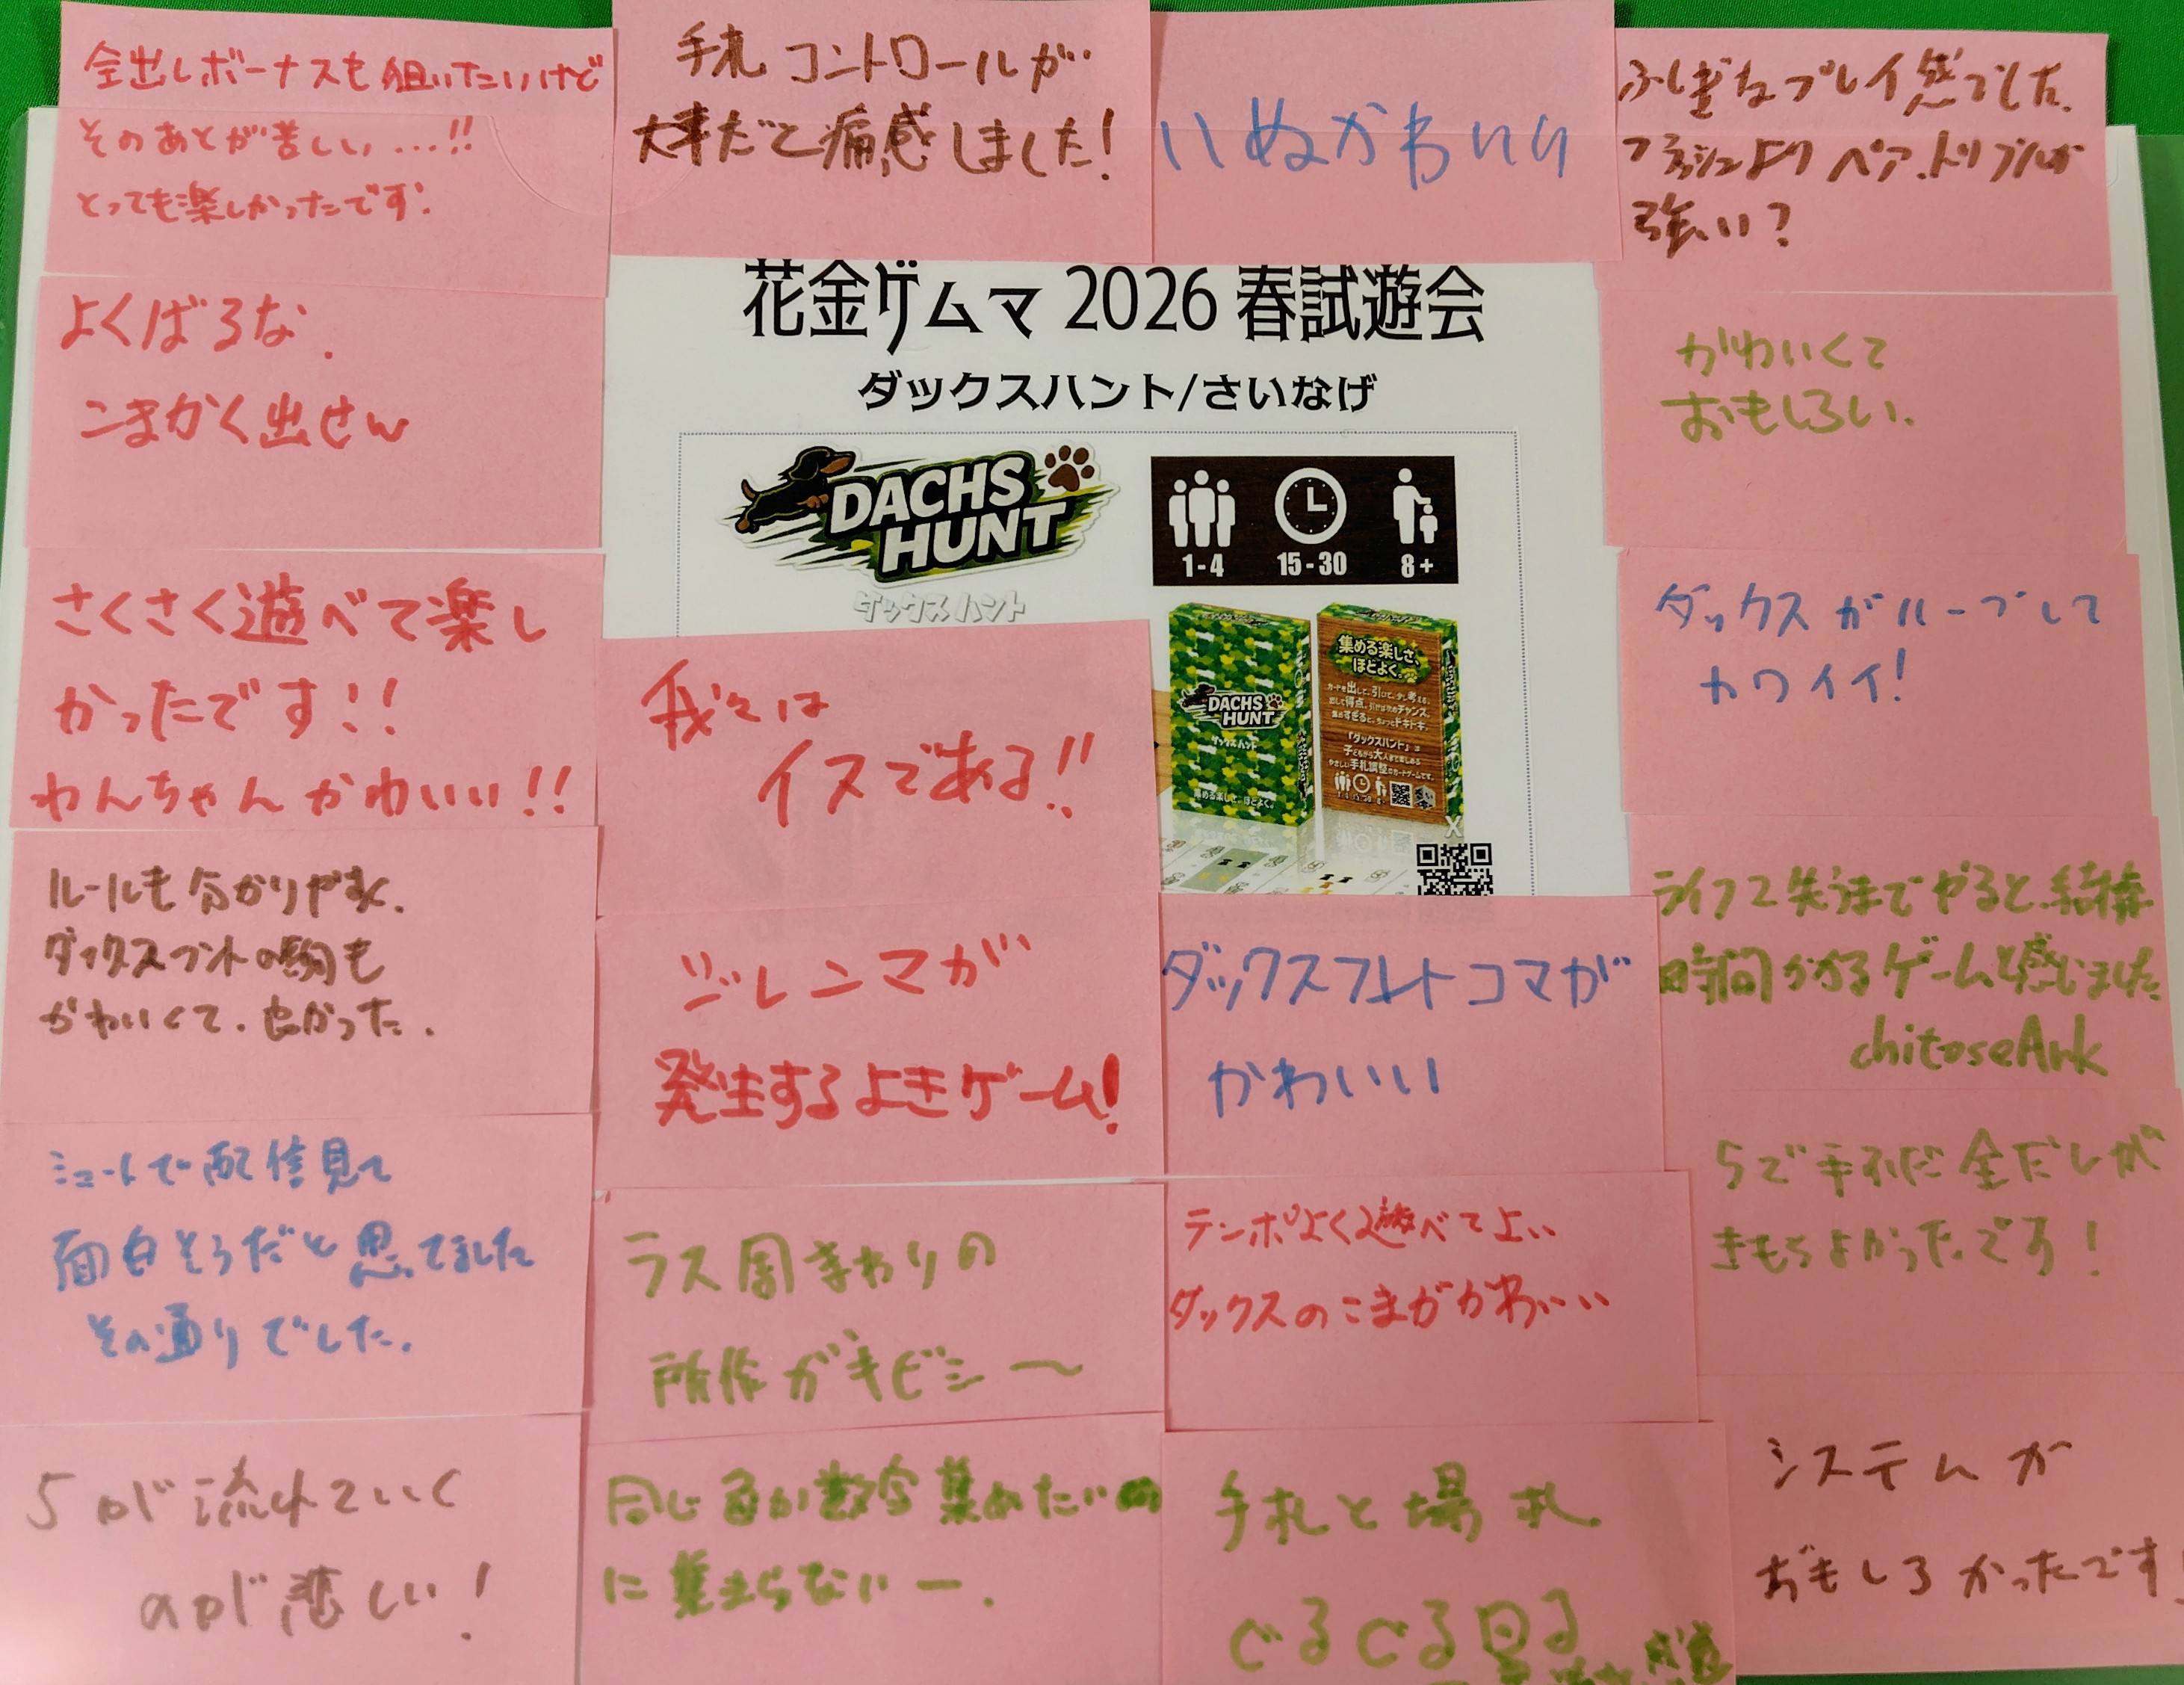 全出しボーナスも狙いたいけど
そのあとが苦しい…!!
とっても楽しかったです!
手札コントロールが
大事だと痛感しました!
いぬかわいい
ふしぎなプレイ感でした.
フラッシュより ペア.トリプルが
強い?
よくばるな.
こまかく出せん
花金ゲムマ 2026 春試遊会
ダックスハント/さいなげ
DACHS
HUNT
ダックスハント
1-4 15-30 8+
集める楽しさ、
ほどよく。
DACHS
HUNT
「ダックスハント」は
子どもから大人まで楽しめる
やさしい手札調整のカードゲームです。
集める楽しさ、ほどよく。
X
かわいくて
おもしろい.
さくさく遊べて楽し
かったです!!
わんちゃんかわいい!!
我々は
イヌである!!
ダックスがループして
カワイイ!
ルールも分かりやすく.
ダックスフントの駒も
かわいくて.良かった.
ジレンマが
発生するよきゲーム!
ダックスフントコマが
かわいい
ライフ2失うまでやると、結構
時間かかるゲームと感じました
chitoseArk
シュートで配信見て
面白そうだと思ってました
その通りでした.
ラス周まわりの
所作がキビシ〜
テンポよく遊べてよい
ダックスのこまがかわいい
5で手札だ全だしが
きもちよかったです!
5が流れていく
のが悲しい!
同じ色か数字集めたいの
に集まらないー.
手札と場札
ぐるぐる回る
システムが
おもしろかったです!